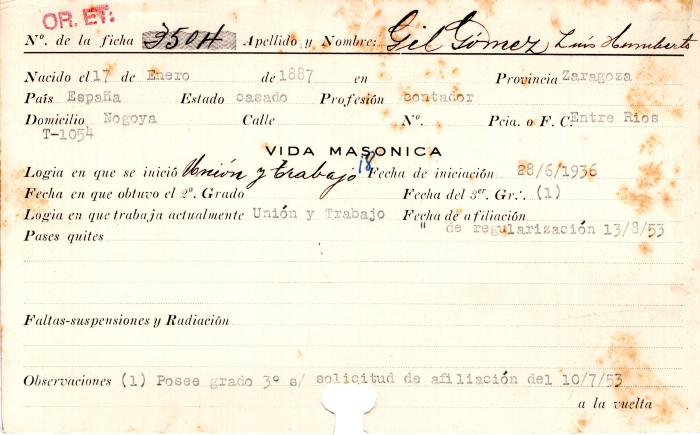 OR. ET:
Nº. de la ficha 3504 Apellido y Nombre: Gil Gómez, Luis Humberto
Nacido el 17 de Enero de 1887 en Provincia Zaragoza
País España Estado casado Profesión contador
Domicilio Nogoya Calle Nº. Pcia. o F. C. Entre Rios
T-1054
VIDA MASONICA
Logia en que se inició Unión y trabajo 18 Fecha de iniciación 28/6/1936
Fecha en que obtuvo el 2º. Grado Fecha del 3er. Gr∴ (1)
Logia en que trabaja actualmente Unión y Trabajo Fecha de afiliación
" de regularización 13/8/53
Pases quites
Faltas-suspensiones y Radiación
Observaciones (1) Posee grado 3º s/ solicitud de afiliación del 10/7/53
a la vuelta